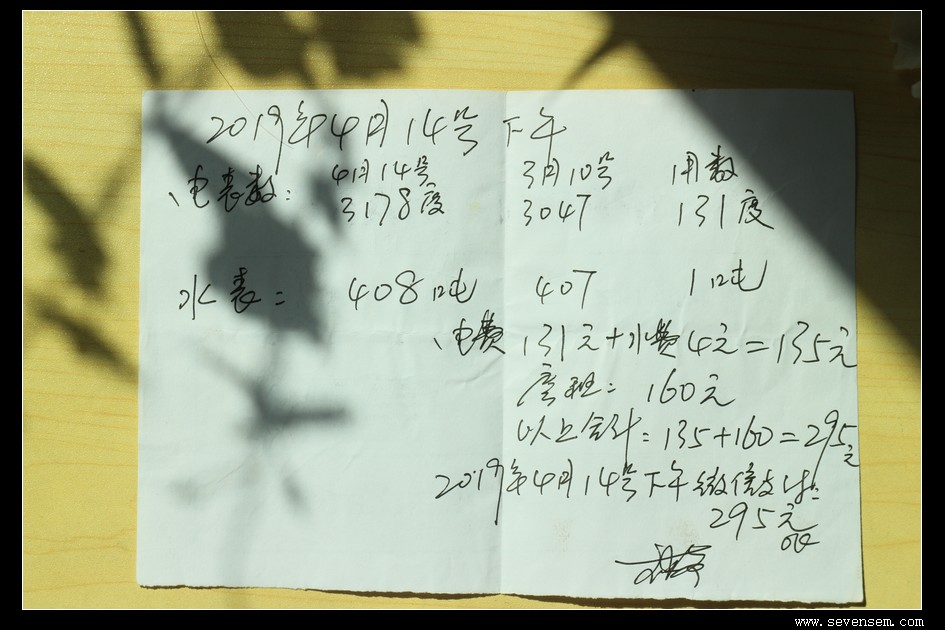 2019年4月14号下午
4月14号 3月10号 用数
、电表数: 3178度 3047 131度
水表= 408吨 407 1吨
、电费131元+水费4元=135元
房租: 160元
以上合计: 135+160=295元
2019年4月14号下午微信支付:
295元
OK
www.sevensem.com